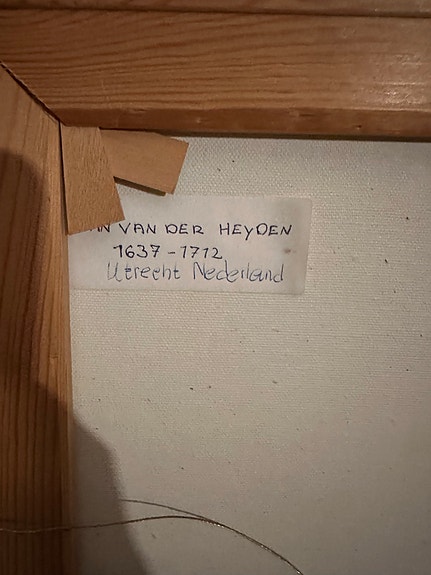 N VAN DER HEYDEN
1637-1712
Utrecht Nederland